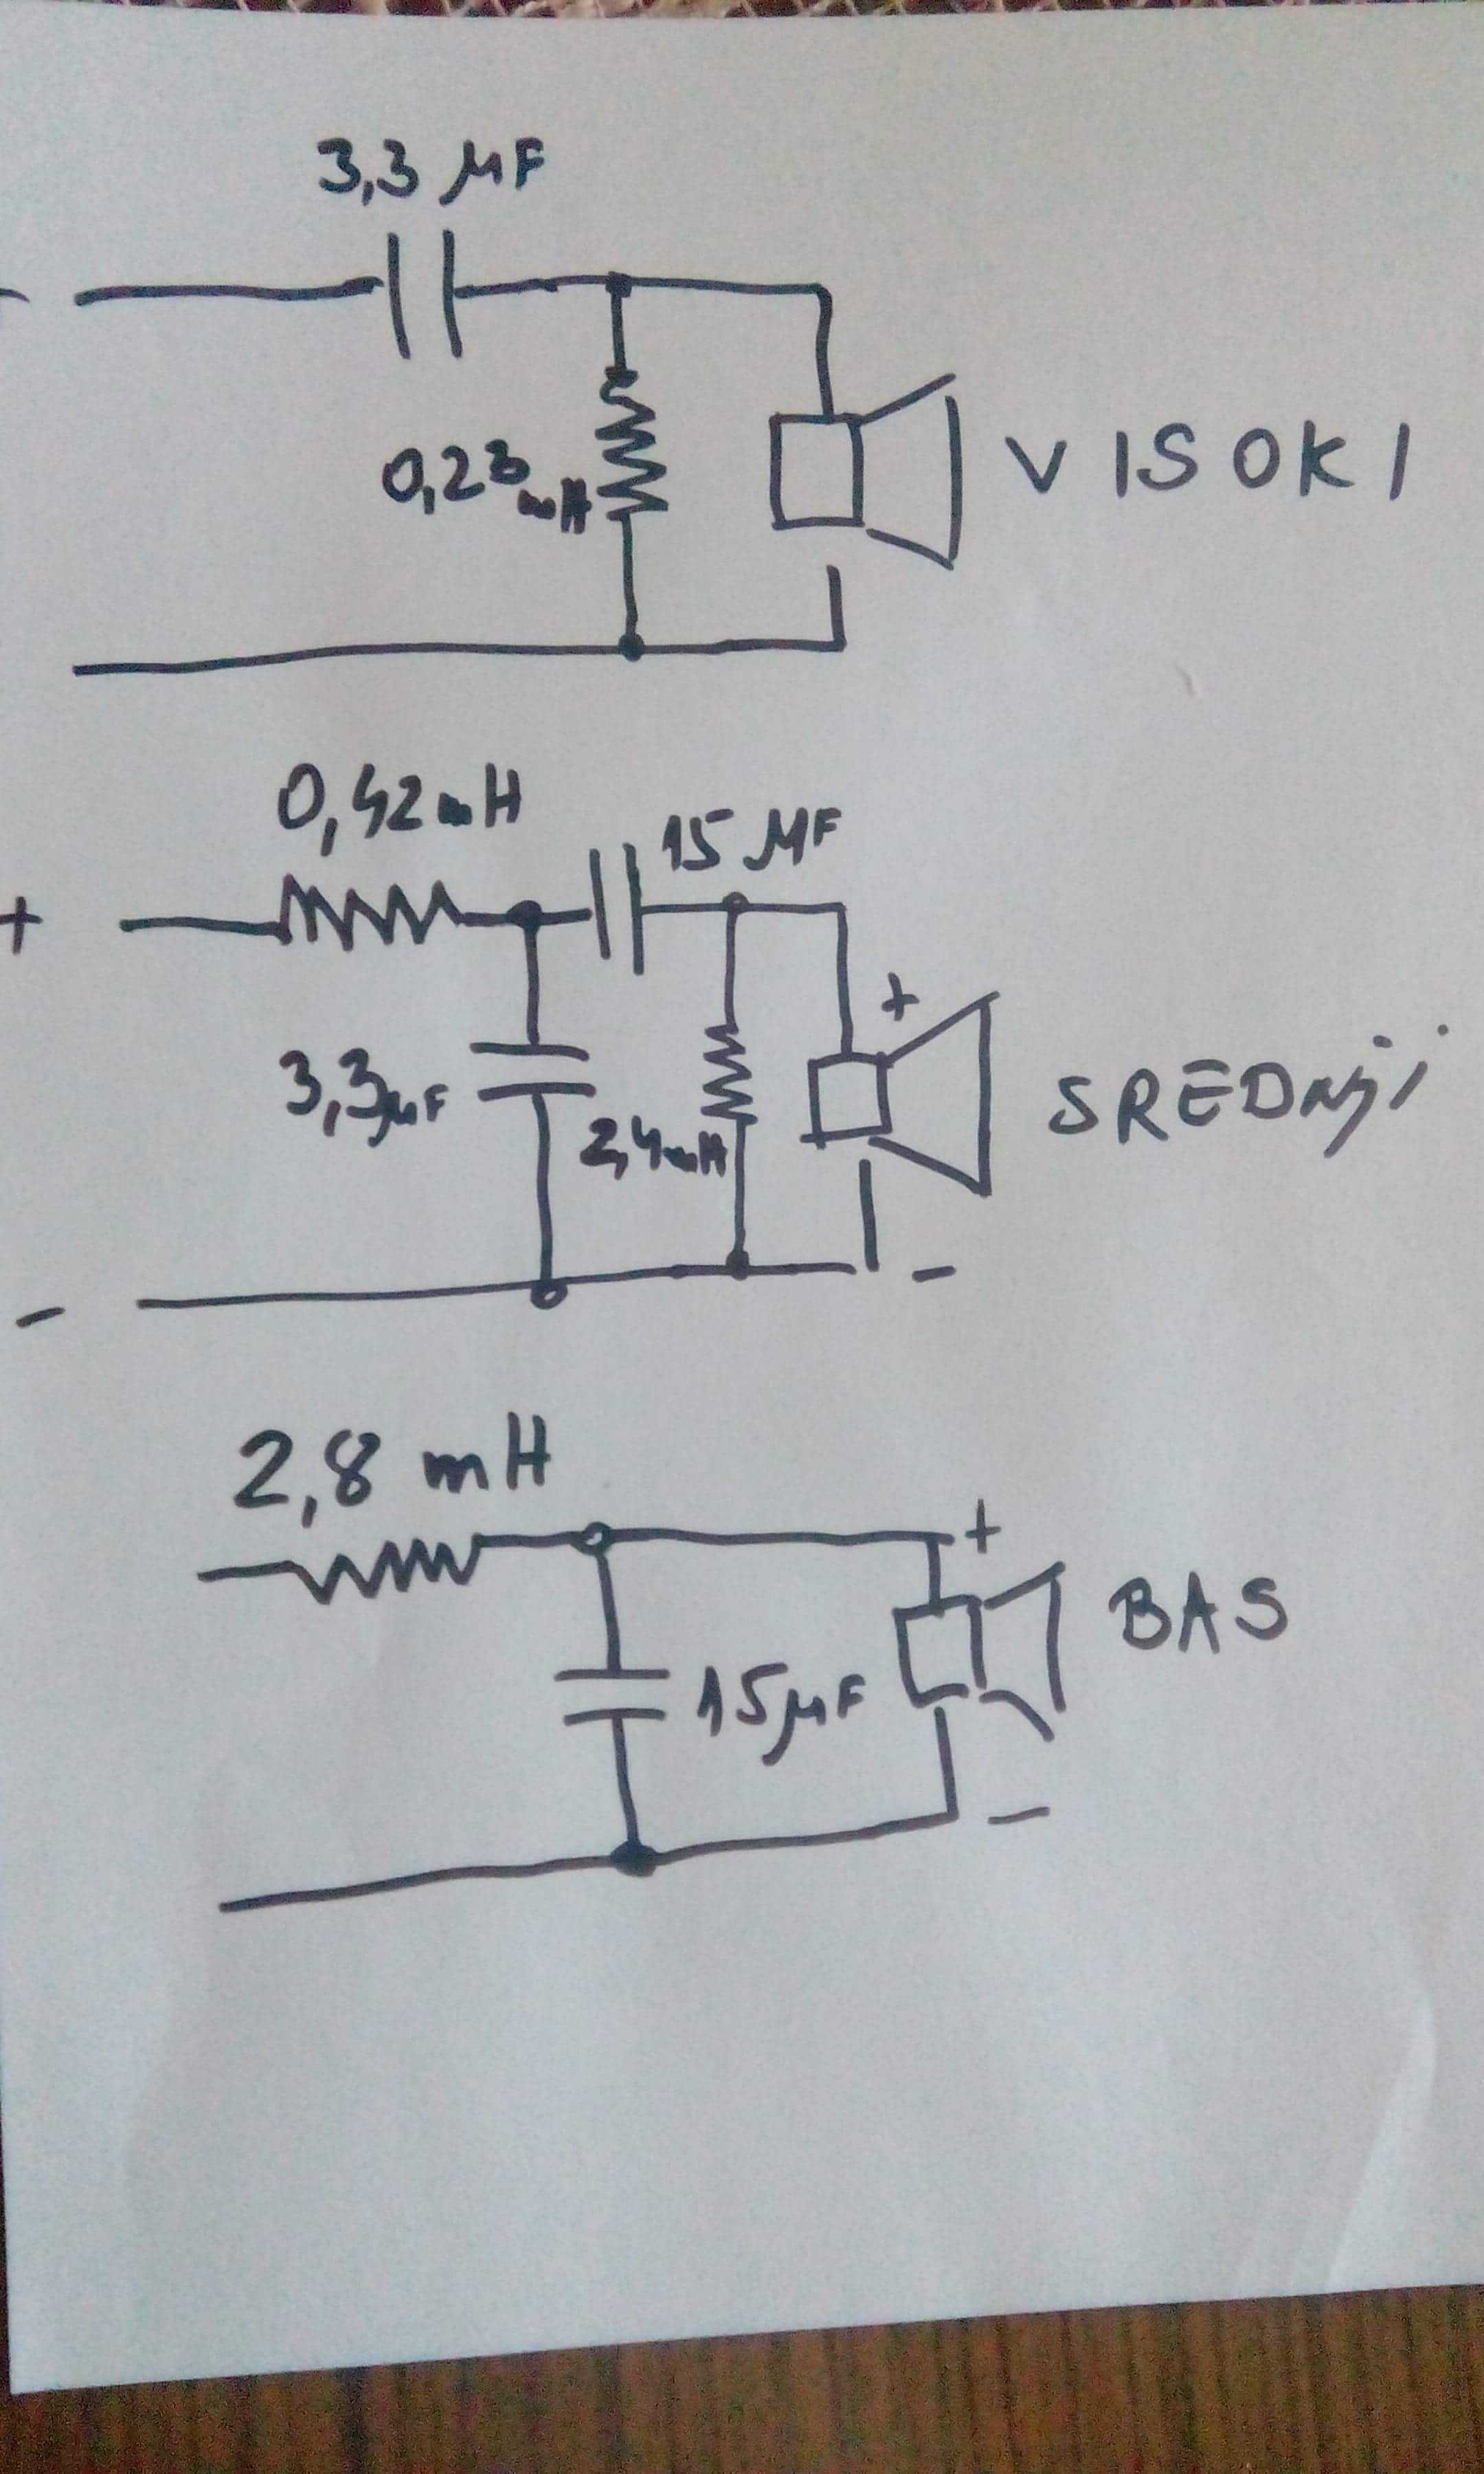 3,3 μF
0,23 mH
VISOKI
0,42 mH
15 μF
+
+
3,3 μF
2,4 mH
SREDNji
-
-
2,8 mH
+
BAS
15 μF
-